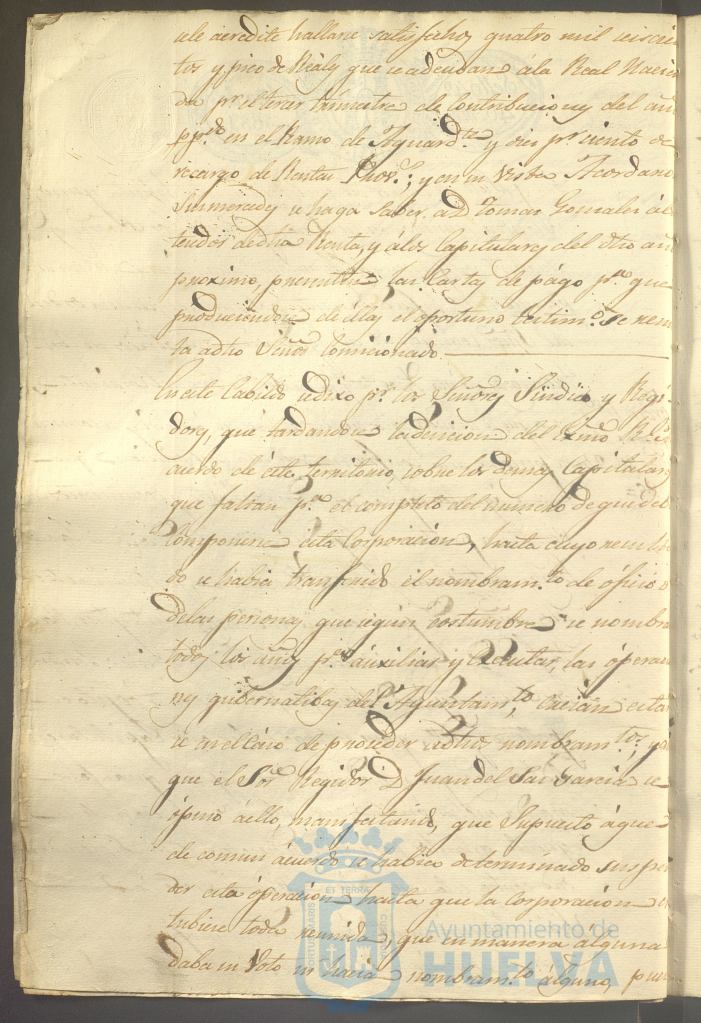 ule acredite hallarse satisfechos quatro mil seiscien
tos y pico de Reales que se adeudan á la Real Hacien
da pr. el tercer trimestre de Contribuciones del año
pp.do en el Ramo de Aguard.te y diez pr. ciento de
recargo de Rentas Prov.s; y en su Vista Acordaron
Sus mercedes se haga saber a D. Tomas Gonzales
tendor de dha Renta, y á los Capitulares del dho año
proximo, presenten las Cartas de pago p.a que
produciendose de ellas el oportuno testim.o se remi
ta a dho Señor Comicionado
En este Cabildo se dixo pr. los Señores Sindico y Regi
dores, que tardandose la decicion del Exmo Rl. A
cuerdo de este territorio, sobre los demas Capitulares
que faltan p.a el completo del numero de que debe
componerse esta Corporación, hasta cuyo
do se habia transferido el nombram.to de óficio
de las personas que segun costumbre se nombra
todos los años p.a auxiliar y executar las óperacio
nes gubernatibas del Ayuntam.to, creian estar
se en el Caso de proseder a dhos nombram.tos, y
que el Sor. Regidor D. Juan del Saz Garcia se
ópuso áello, manifestando, que Supuesto áque
de comun ácuerdo se habia determinado suspen
der esta óperación hasta que la Corporacion es
tubiese toda reunida, que en manera álguna
daba su Voto ni hacia nombram.to álguno, pues
Ayuntamiento de
HUELVA
PORTUS MARIS ET TERRÆ CUSTODIA